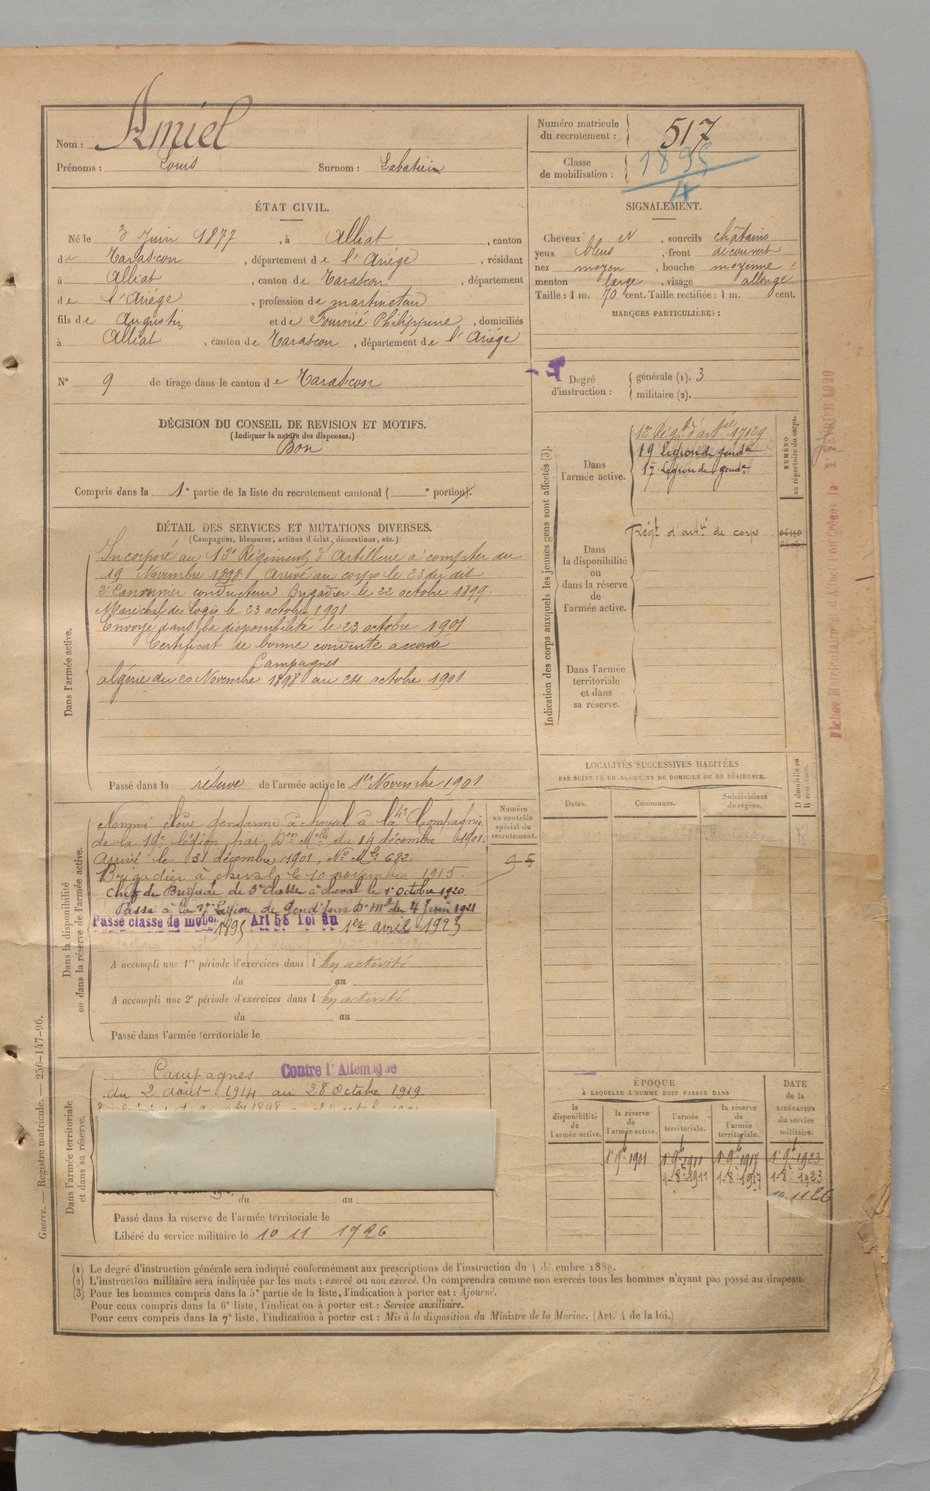 Nom : Amiel
Prénoms : Louis Surnom : Labatsein
ÉTAT CIVIL.
Né le 3 Juin 1877, à Alliat, canton
de Tarascon, département de l'Ariège, résidant
à Alliat, canton de Tarascon, département
de l'Ariège, profession de
fils de Augustin et de Fournié Philippine, domiciliés
à Alliat, canton de Tarascon, département de l'Ariège
N° 9 de tirage dans le canton de Tarascon
DÉCISION DU CONSEIL DE REVISION ET MOTIFS.
(Indiquer la nature des dispenses.)
Bon
Compris dans la 1e partie de la liste du recrutement cantonal ( e portion).
DÉTAIL DES SERVICES ET MUTATIONS DIVERSES.
(Campagnes, blessures, actions d'éclat, décorations, etc.)
Dans l'armée active.
Incorporé au 13e Régiment d'Artillerie à compter du
19 Novembre 1898, Arrivé au corps le 23 du dit
2e Canonnier conducteur Brigadier le 22 octobre 1899.
Maréchal des logis le 23 octobre 1901
Envoyé dans la disponibilité le 23 octobre 1901
Certificat de bonne conduite accordé
Campagnes
Algérie du 20 Novembre 1898 au 24 octobre 1901
Passé dans la réserve de l'armée active le 1er Novembre 1901
Dans la disponibilité
ou dans la réserve de l'armée active.
Nommé élève gendarme à cheval à la 4e Compagnie
de la 19e Légion par Don Mlle du 14 décembre 1901.
Arrivé le 31 décembre 1901, No Mle 682.
Brigadier à cheval le 10 novembre 1915.
Chef de Brigade de 3e classe à cheval le 1 octobre 1920
Passé à la 17e Légion de Gendie par Dn Mle du 4 Juin 1921
Passé classe de mobon 1895 Art 58 Loi du 1er avril 1923
A accompli une 1re période d'exercices dans l En activité
du au
A accompli une 2e période d'exercices dans l En activité
du au
Passé dans l'armée territoriale le
Numéro
au contrôle
spécial du
recrutement.
95
Dans l'armée territoriale
et dans sa réserve.
Campagnes Contre l'Allemagne
du 2 août 1914 au 28 Octobre 1919.
du au
Passé dans la réserve de l'armée territoriale le
Libéré du service militaire le 10 11 1926
Numéro matricule
du recrutement : 517
Classe
de mobilisation : 1895
SIGNALEMENT.
Cheveux N, sourcils châtains
yeux bleus, front découvert
nez moyen, bouche moyenne
menton large, visage allongé
Taille : 1 m. 70 cent. Taille rectifiée : 1 m. cent.
MARQUES PARTICULIÈRES :
Degré
d'instruction : générale (1). 3
militaire (2).
Indication des corps auxquels les jeunes gens sont affectés (3).
NUMÉRO
au répertoire du corps.
Dans
l'armée active.
13e Régt d'artie 17129
19 Légion de gendie
17 Légion de gendie
Dans
la disponibilité
ou
dans la réserve
de
l'armée active.
Régt d'artie de corps
Dans l'armée
territoriale
et dans
sa réserve.
LOCALITÉS SUCCESSIVES HABITÉES
PAR SUITE DE CHANGEMENTS DE DOMICILE OU DE RÉSIDENCE.
Dates. Communes. Subdivisions
de région.
D domicile ou
R résidence.
ÉPOQUE
À LAQUELLE L'HOMME DOIT PASSER DANS
la
disponibilité
de
l'armée active.
la réserve
de
l'armée active.
l'armée
territoriale.
la réserve
de
l'armée
territoriale.
DATE
de la
LIBÉRATION
du service
militaire.
1 9b 1901 1 9b 1911 1 9b 1917 1 9b 1923
1-8-1911 1-8-1917 1-8-1923
Guerre. — Registre matricule. — 256-147-96.
(1) Le degré d'instruction générale sera indiqué conformément aux prescriptions de l'instruction du 4 décembre 1889.
(2) L'instruction militaire sera indiquée par les mots : exercé ou non exercé. On comprendra comme non exercés tous les hommes n'ayant pas passé au drapeau.
(3) Pour les hommes compris dans la 5e partie de la liste, l'indication à porter est : Ajourné.
Pour ceux compris dans la 6e liste, l'indication à porter est : Service auxiliaire.
Pour ceux compris dans la 7e liste, l'indication à porter est : Mis à la disposition du Ministre de la Marine. (Art. 4 de la loi.)